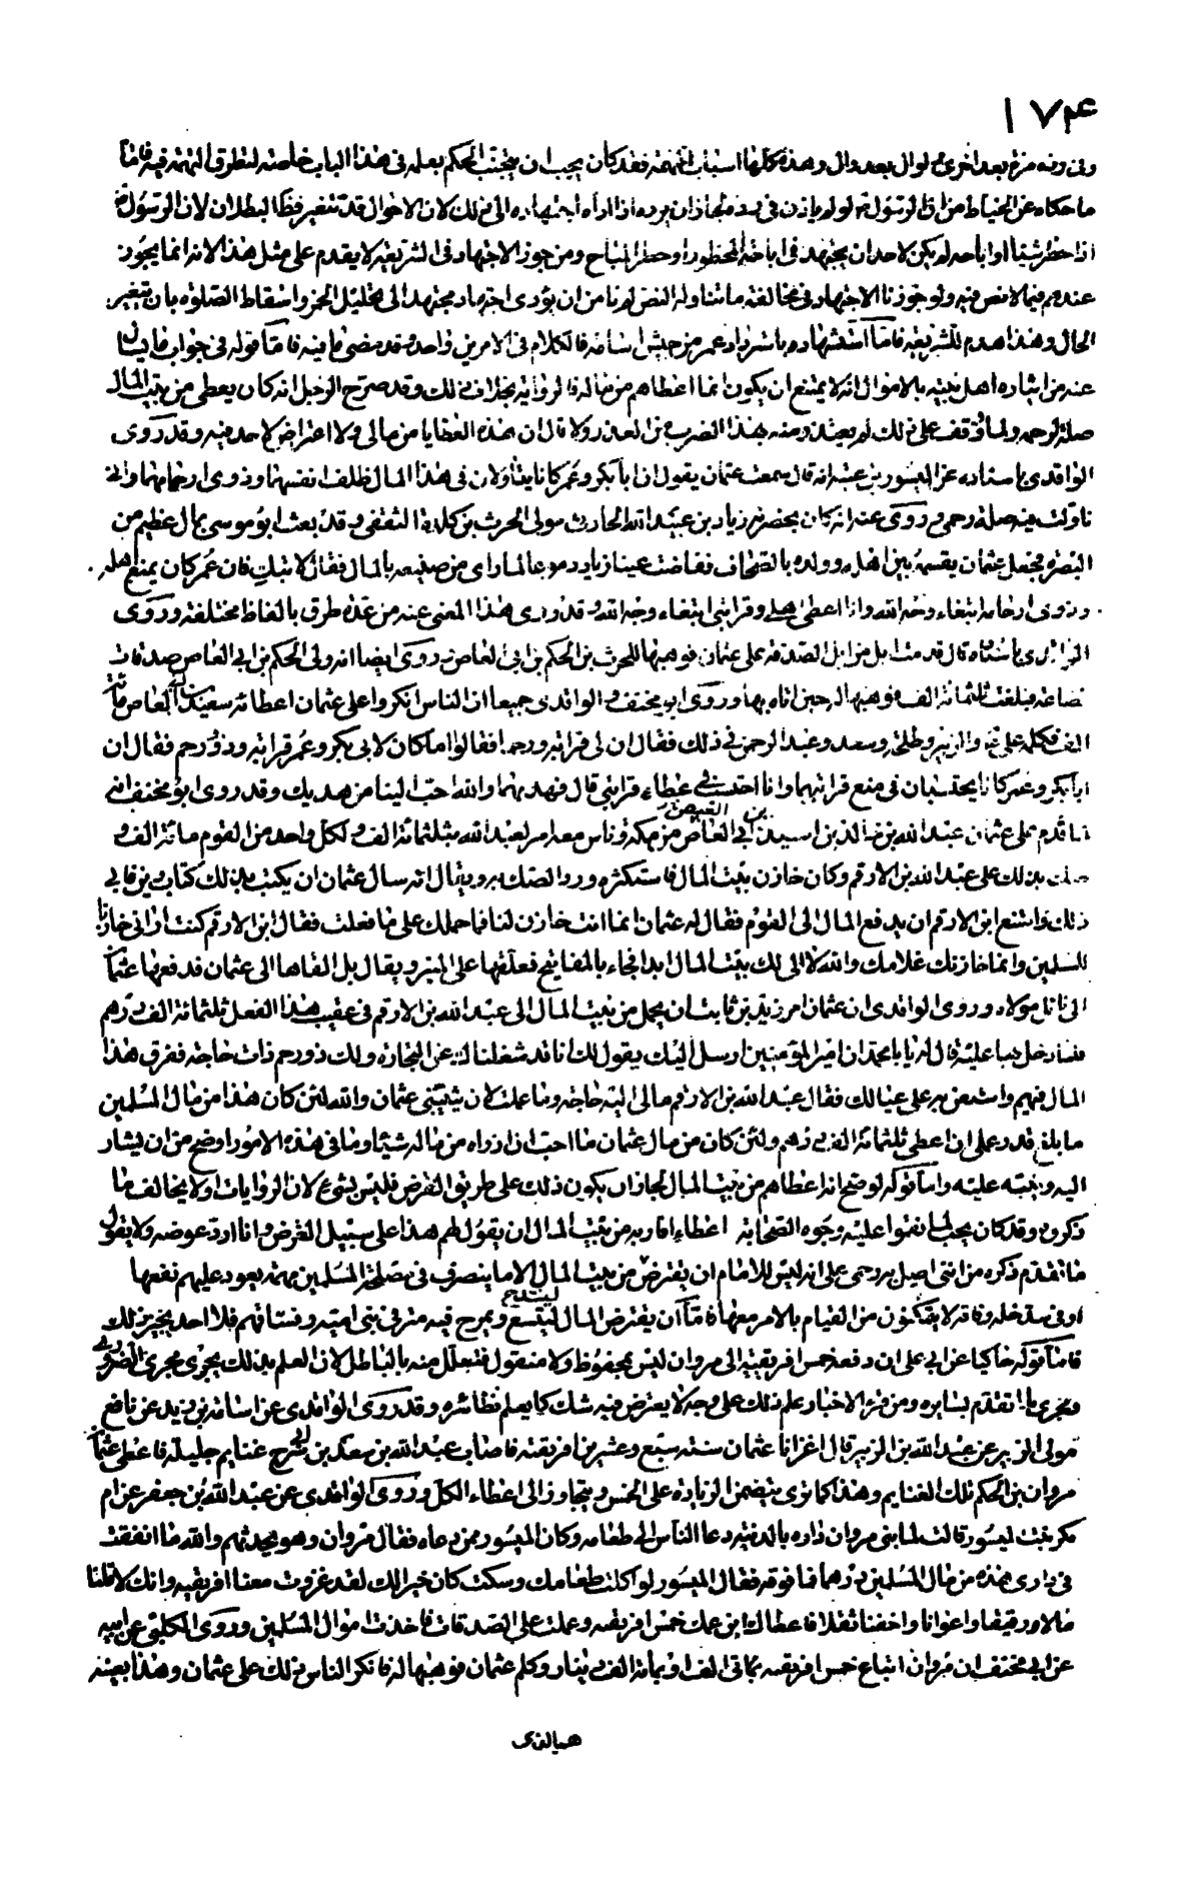 ١٧۴
وفى ومنه مرة بعد اخرى لوال بعد وال وهذه كلها اسباب التهمة فقد كان يجب ان يتجنب الحكم بعلمه فى هذا الباب خاصة لتطرق التهمة فيه فاما
ما حكاه عن الخياط من ان الرسول لو لم ياذن فى رده لجاز ان يرده اذا اداه اجتهاده الى ذلك لان الاحوال قد تتغير فظاهر البطلان لان الرسول
اذا حظر شيئا او اباحه لم يكن لاحد ان يجتهد فى اباحة المحظور او حظر المباح ومن جوز الاجتهاد فى الشريعة لا يقدم على مثل هذا لانه انما يجوز
عندهم فيما لا نص فيه ولو جوزنا الاجتهاد فى مخالفة ما تناوله النص لم نامن ان يؤدى اجتهاد مجتهد الى تحليل الخمر واسقاط الصلوة بان تتغير
الحال وهذا هدم للشريعة فاما استشهاده باسترداد عمر من جيش اسامة فالكلام فى الامرين واحد وقد مضى ما فيه فاما قوله فى جواب ما يسال
عنه من ايثاره اهل بيته بالاموال انه لا يمتنع ان يكون انما اعطاهم من ماله فالرواية بخلاف ذلك وقد صرح الرجل انه كان يعطى من بيت المال
صلة لرحمه ولما وقف على ذلك لم يعتذر منه بهذا الضرب من العذر ولا قال ان هذه العطايا من مالى ولا اعتراض لاحد فيه وقد روى
الواقدى باسناده عن المسور بن عتبة انه قال سمعت عثمان يقول ان ابا بكر وعمر كانا يتاولان فى هذا المال ظلف انفسهما وذوى ارحامهما وانى
تاولت فيه صلة رحمى وروى عنه انه كان بحضرته زياد بن عبيد الله الحارث مولى الحرث بن كلدة الثقفى وقد بعث ابو موسى بمال عظيم من
البصرة فجعل عثمان يقسمه بين اهله وولده بالصحاف ففاضت عينا زياد دموعا لما راى من صنيعه بالمال فقال لا تبك فان عمر كان يمنع اهله
وذوى ارحامه ابتغاء وجه الله وانا اعطى اهلى وقرابتى ابتغاء وجه الله وقد روى هذا المعنى عنه من عدة طرق بالفاظ مختلفة وروى
الواقدى باسناده قال قدمت ابل من ابل الصدقة على عثمان فوهبها للحرث بن الحكم بن ابى العاص وروى ايضا انه ولى الحكم بن ابى العاص صدقات
قضاعة فبلغت ثلثمائة الف فوهبها له حين اتاه بها وروى ابو مخنف والواقدى جميعا ان الناس انكروا على عثمان اعطائه سعيد بن العاص مائة
الف فكلمه على والزبير وطلحة وسعد وعبد الرحمن فى ذلك فقال ان لى قرابة ورحما فقالوا اما كان لابى بكر وعمر قرابة وذو رحم فقال ان
ابا بكر وعمر كانا يحتسبان فى منع قرابتهما وانا احتسب فى عطاء قرابتى قال فهديهما والله احب الينا من هديك وقد روى ابو مخنف انه
لما قدم على عثمان عبد الله بن خالد بن اسيد بن ابى العيص من مكة وناس معه امر لعبد الله بثلثمائة الف ولكل واحد من القوم مائة الف و
صك بذلك على عبد الله بن الارقم وكان خازن بيت المال فاستكثره ورد الصك به ويقال انه سال عثمان ان يكتب بذلك كتاب دين فابى
ذلك وامتنع ابن الارقم ان يدفع المال الى القوم فقال له عثمان انما انت خازن لنا فما حملك على ما فعلت فقال ابن الارقم كنت ارانى خازنا
للمسلمين وانما خازنك غلامك والله لا الى لك بيت المال ابدا فجاء بالمفاتيح فعلقها على المنبر ويقال بل القاها الى عثمان فدفعها عثمان
الى ناتل مولاه وروى الواقدى ان عثمان امر زيد بن ثابت ان يحمل من بيت المال الى عبد الله بن الارقم فى عقيب هذا الفعل ثلثمائة الف درهم
فلما دخل بها عليه قال له يا ابا محمد ان امير المؤمنين ارسل اليك يقول لك انا قد شغلناك عن التجارة ولك ذو رحم ذات حاجة ففرق هذا
المال فيهم واستعن به على عيالك فقال عبد الله بن الارقم مالى اليه حاجة وما عملت لان يثيبنى عثمان والله لئن كان هذا من مال المسلمين
ما بلغ قدر عملى ان اعطى ثلثمائة الف درهم ولئن كان من مال عثمان ما احب ان ازراه من ماله شيئا وما فى هذه الامور اوضح من ان يشار
اليه وينبه عليه واما قوله لو صح انه اعطاهم من بيت المال لجاز ان يكون ذلك على طريق القرض فليس بشىء لان الروايات اولا يخالف ما
ذكروه وقد كان يجب لما نقموا عليه وجوه الصحابة اعطاء اقاربه من بيت المال ان يقول لهم هذا على سبيل القرض وانا ارد عوضه ولا يقول
ما تقدم ذكره من اننى اصل به رحمى على انه ليس للامام ان يقترض من بيت المال الا ما ينصرف فى مصلحة المسلمين مهمة يعود عليهم نفعها
او فى سد خلة وفاقة لا يتمكنون من القيام بالامر معها فاما ان يقترض المال ليتسع ويمرح فيه مترفى بنى امية وفساقهم فلا احد يجيز ذلك
فاما قوله حاكيا عن ابى على ان دفعه خمس افريقية الى مروان ليس بمحفوظ ولا منقول فتعلل منه بالباطل لان العلم بذلك يجرى مجرى الضرورى
ومجرى ما تقدم بسائره ومن قرء الاخبار علم ذلك على وجه لا يعترض فيه شك كما يعلم نظائره وقد روى الواقدى عن اسامة بن زيد عن نافع
مولى الزبير عن عبد الله بن الزبير قال اغزانا عثمان سنة سبع وعشرين افريقية فاصاب عبد الله بن سعد بن ابى سرح غنايم جليلة فاعطى عثمان
مروان بن الحكم تلك الغنايم وهذا كما ترى يتضمن الزيادة على الخمس ويتجاوز الى اعطاء الكل وروى الواقدى عن عبد الله بن جعفر عن ام
بكر بنت المسور قالت لما بنى مروان داره بالمدينة دعا الناس الى طعامه وكان المسور ممن دعاه فقال مروان وهو يحدثهم والله ما انفقت
فى دارى هذه من مال المسلمين درهما فما فوقه فقال المسور لو اكلت طعامك وسكت كان خيرا لك لقد غزوت معنا افريقية وانك لاقلنا
مالا ورقيقا واعوانا واخفنا ثقلا فاعطاك ابن عمك خمس افريقية وعملت على الصدقات فاخذت اموال المسلمين وروى الكلبى عن ابيه
عن ابى مخنف ان مروان ابتاع خمس افريقية بمائتى الف او بمائة الف دينار وكلم عثمان فوهبها له فانكر الناس ذلك على عثمان وهذا بعينه
هو الذى